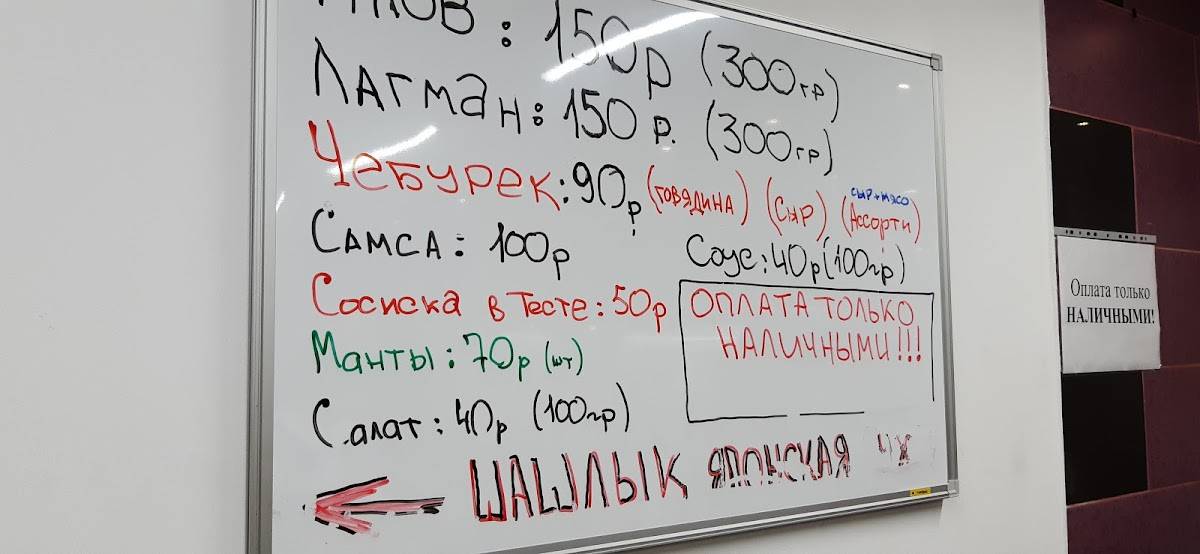 : 150р (300гр)
Лагман: 150р. (300гр)
Чебурек: 90р (говядина) (Сыр) (Ассорти)
сыр+мясо
Самса: 100р
Соус: 40р (100гр)
Сосиска в тесте: 50р
Манты: 70р (шт)
Салат: 40р (100гр)
ОПЛАТА ТОЛЬКО
НАЛИЧНЫМИ!!!
ШАШЛЫК ЯПОНСКАЯ
Оплата только
НАЛИЧНЫМИ!